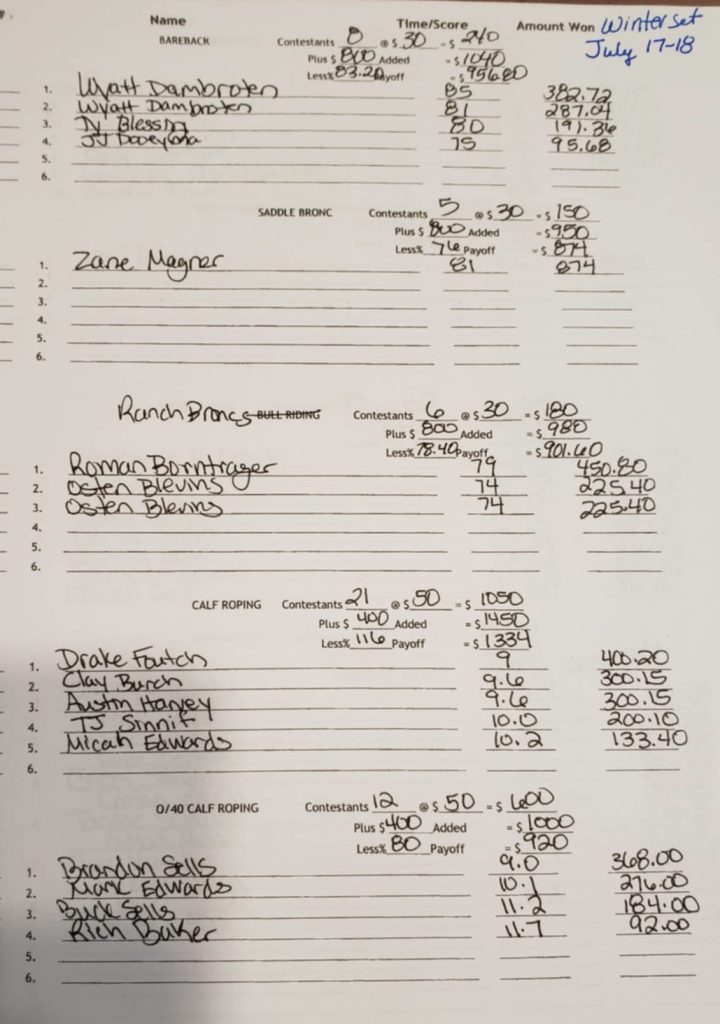 Name Time/Score Amount Won Winterset
July 17-18
BAREBACK Contestants 8 @ $ 30 = $ 240
Plus $ 800 Added = $ 1040
Less% 83.20 Payoff = $ 956.80
1. Wyatt Dambroten 85 382.72
2. Wyatt Dambroten 81 287.04
3. Ty Blessing 80 191.36
4. JJ 75 95.68
5.
6.
SADDLE BRONC Contestants 5 @ $ 30 = $ 150
Plus $ 800 Added = $ 950
Less% 76 Payoff = $ 874
1. Zane Magner 81 874
2.
3.
4.
5.
6.
Ranch Broncs BULL RIDING Contestants 6 @ $ 30 = $ 180
Plus $ 800 Added = $ 980
Less% 78.40 Payoff = $ 901.60
1. Roman Borntrager 79 450.80
2. Osten Blevins 74 225.40
3. Osten Blevins 74 225.40
4.
5.
6.
CALF ROPING Contestants 21 @ $ 50 = $ 1050
Plus $ 400 Added = $ 1450
Less% 116 Payoff = $ 1334
1. Drake Foutch 9 400.20
2. Clay Burch 9.6 300.15
3. Austin Harvey 9.6 300.15
4. TJ Sinnif 10.0 200.10
5. Micah Edwards 10.2 133.40
6.
O/40 CALF ROPING Contestants 12 @ $ 50 = $ 600
Plus $ 400 Added = $ 1000
Less% 80 Payoff = $ 920
1. Brandon Sells 9.0 368.00
2. Mark Edwards 10.1 276.00
3. Buck Sells 11.2 184.00
4. Rich Baker 11.7 92.00
5.
6.